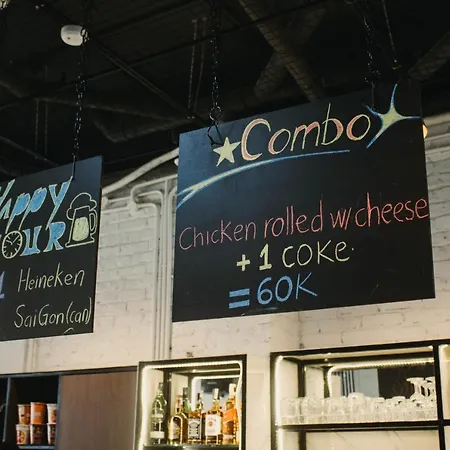 Happy
HOUR
Heineken
SaiGon(can)
Combo
Chicken rolled w/cheese
+ 1 COKE.
= 60K